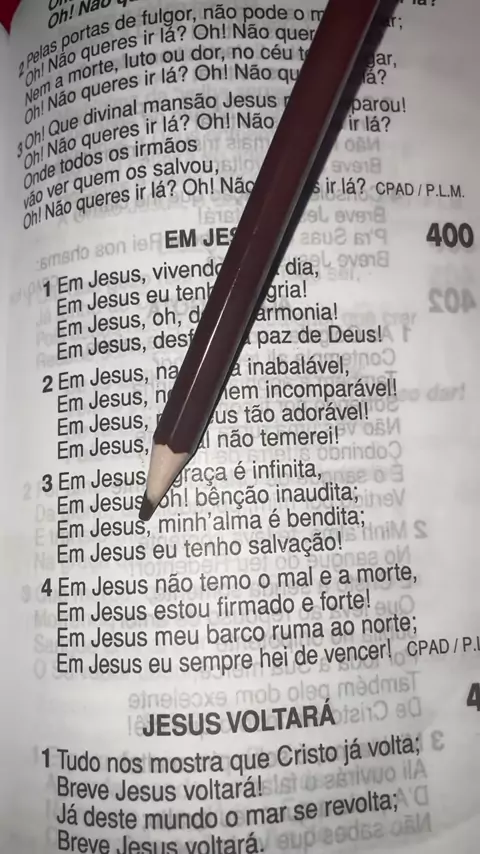 Oh! Não q
2 Pelas portas de fulgor, não pode o m ar;
Oh! Não queres ir lá? Oh! Não quer
Nem a morte, luto ou dor, no céu t gar,
Oh! Não queres ir lá? Oh! Não qu lá?
3 Oh! Que divinal mansão Jesus parou!
Oh! Não queres ir lá? Oh! Não ir lá?
Onde todos os irmãos
vão ver quem os salvou,
Oh! Não queres ir lá? Oh! Não s ir lá? CPAD / P.L.M.
EM JES 400
1 Em Jesus, vivendo dia,
Em Jesus eu tenh gria!
Em Jesus, oh, d armonia!
Em Jesus, desf paz de Deus!
2 Em Jesus, na a inabalável,
Em Jesus, n nem incomparável!
Em Jesus, us tão adorável!
Em Jesus, l não temerei!
3 Em Jesus graça é infinita,
Em Jesus oh! bênção inaudita;
Em Jesus, minh'alma é bendita;
Em Jesus eu tenho salvação!
4 Em Jesus não temo o mal e a morte,
Em Jesus estou firmado e forte!
Em Jesus meu barco ruma ao norte;
Em Jesus eu sempre hei de vencer! CPAD / P.L
JESUS VOLTARÁ 4
1 Tudo nos mostra que Cristo já volta;
Breve Jesus voltará!
Já deste mundo o mar se revolta;
Breve Jesus voltará.